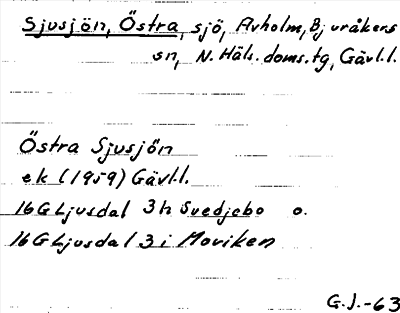 Sjusjön, Östra, sjö, Avholm, Bjuråkers
sn, N. Häls. doms. tg, Gävl.l.
Östra Sjusjön
ek (1959) Gävl.l.
16G Ljusdal 3h Svedjebo o.
16G Ljusdal 3i Moviken
G.J.-63